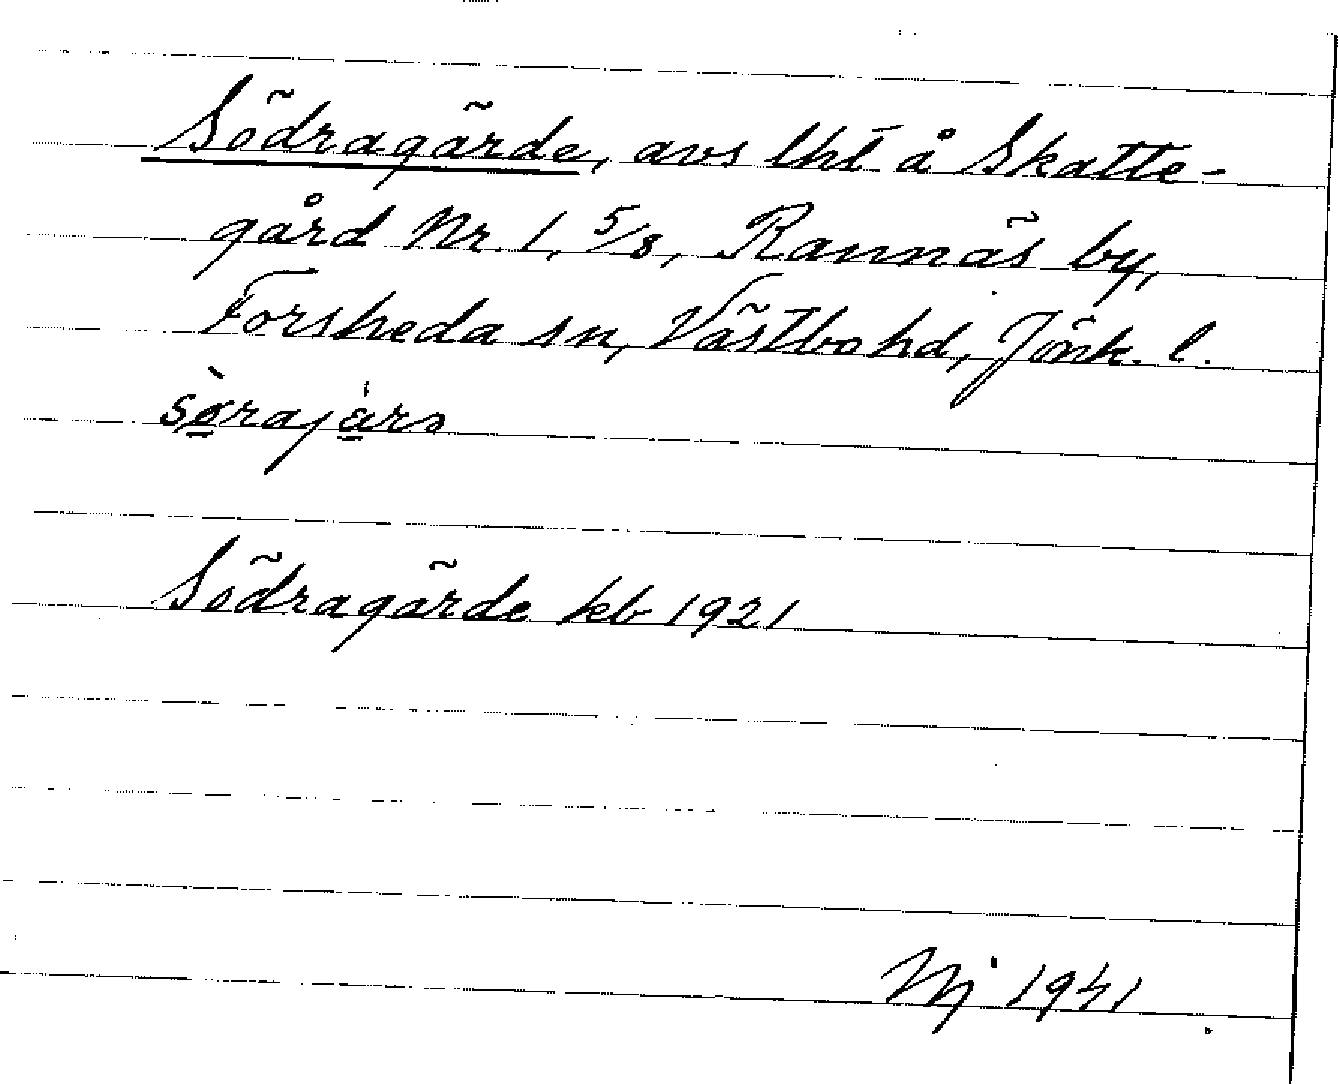 Södragärde, avs lht å Skatte-
gård Nr. 1, 5/8, Rannäs by,
Forsheda sn, Västbo hd, Jönk. l.
sö̀rajá̈rə
Södragärde kb 1921
1941